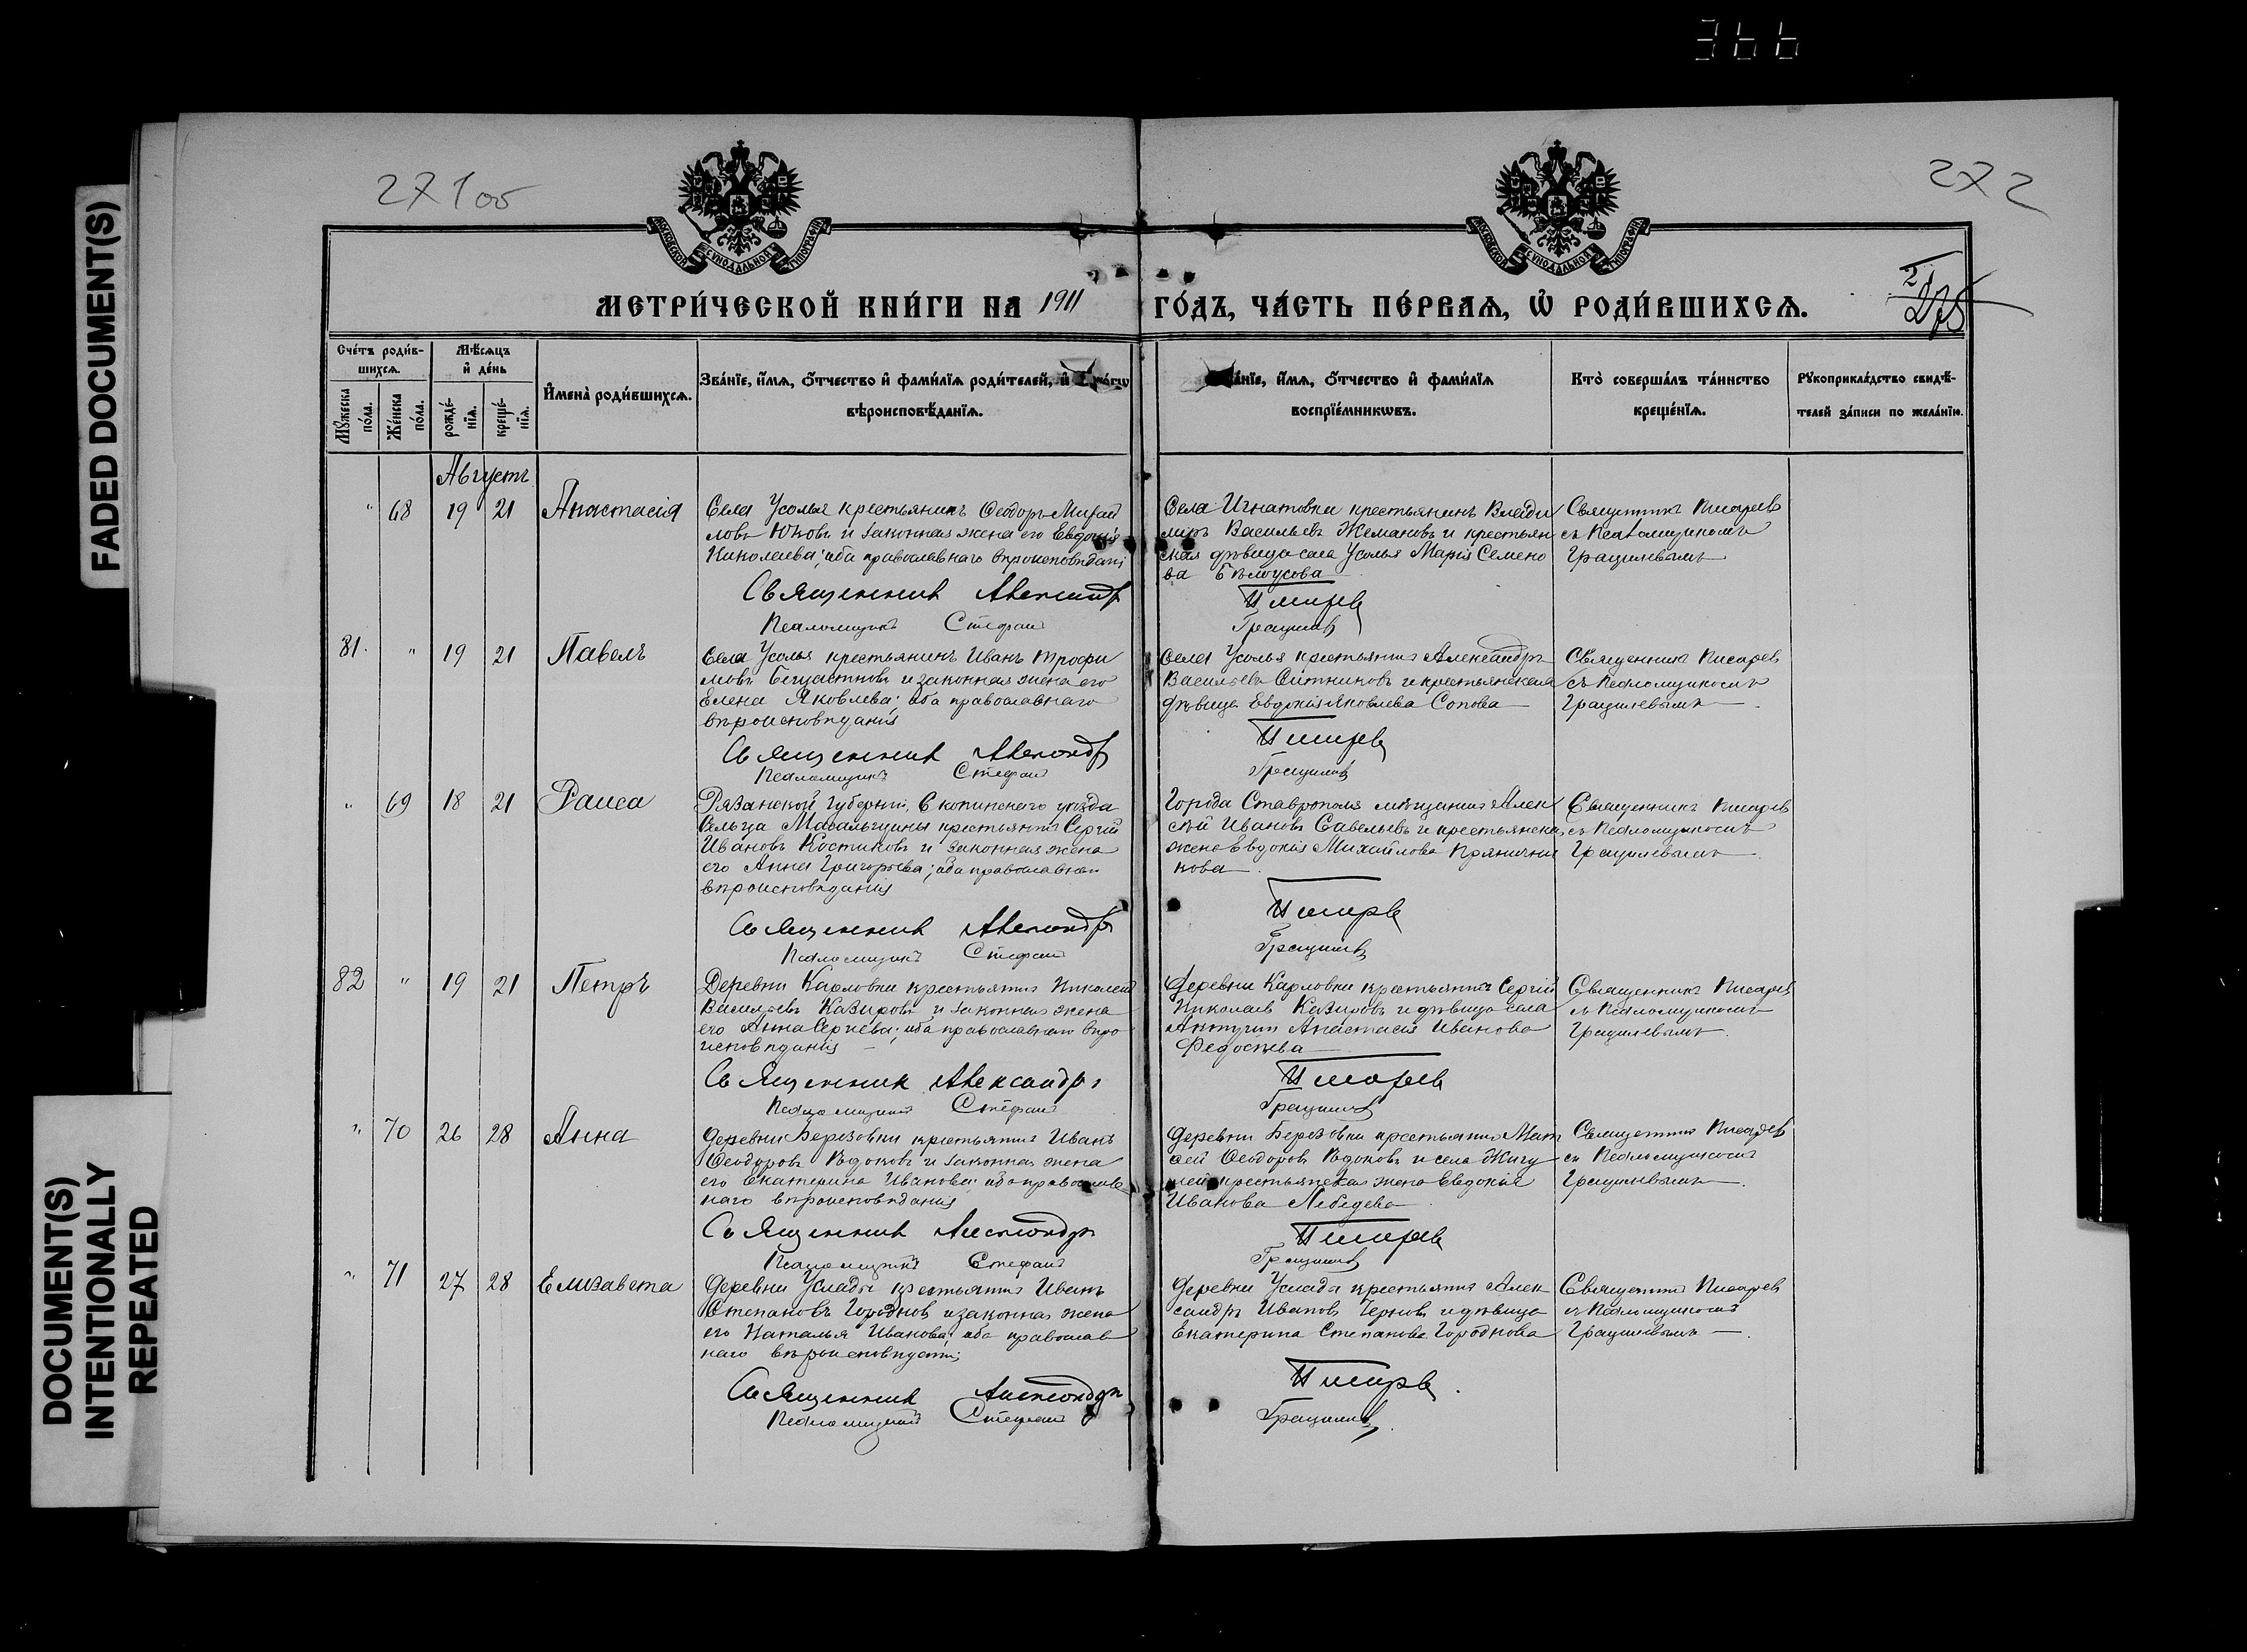 366
FADED DOCUMENT(S)
DOCUMENT(S)
INTENTIONALLY
REPEATED
271 об
272
МОСКОВСКОЙ СѴНОДАЛЬНОЙ ТИПОГРАФІИ
МОСКОВСКОЙ СѴНОДАЛЬНОЙ ТИПОГРАФІИ
МЕТРИ́ЧЕСКОЙ КНИ́ГИ НА 1911 ГО́ДЪ, ЧА́СТЬ ПЕ́РВАѦ, Ѡ҆ РОДИ́ВШИХСѦ.
Сче́тъ роди́в-
шихсѧ.
Мꙋ́жеска по́ла.
Же́нска по́ла.
Мѣ́сѧцъ
и҆ де́нь
рожде́-
нїѧ.
креще́-
нїѧ.
И҆мена̀ роди́вшихсѧ.
Зва́нїе, и҆́мѧ, ѻ҆́тчество и҆ фами́лїѧ роди́телей, и҆
вѣроисповѣ́данїѧ.
а́нїе, и҆́мѧ, ѻ҆́тчество и҆ фами́лїѧ
воспрїе́мникѡвъ.
Кто̀ соверша́лъ та́инство
креще́нїѧ.
Рꙋкоприкла́дство свидѣ́-
телей за́писи по жела́нїю.
Августъ
" 68 19 21 Анастасія
Села Усолья крестьянинъ Ѳеодоръ Михай
ловъ Юковъ и законная жена его Евдокія
Николаева; оба православнаго вѣроисповѣданія
Священникъ Александръ
Псаломщикъ Стефанъ
Села Игнатовки крестьянинъ Влади
міръ Васильевъ Жемановъ и крестьян
ская дѣвица села Усолья Марія Семено
ва Бѣлоусова
Писаревъ
Грацилевъ
Священникъ Писаревъ
съ Псаломщикомъ
Грацилевымъ
81. " 19 21 Павелъ
Села Усолья крестьянинъ Иванъ Трофи
мовъ и законная жена его
Елена Яковлева; оба православнаго
вѣроисповѣданія
Священникъ Александръ
Псаломщикъ Стефанъ
Села Усолья крестьянинъ Александръ
Васильевъ Ситниковъ и крестьянская
дѣвица Евдокія Яковлева Сопова
Писаревъ
Грацилевъ
Священникъ Писаревъ
съ Псаломщикомъ
Грацилевымъ
" 69 18 21 Раиса
Рязанской губерніи, Скопинскаго уѣзда
Сельца Масальщины крестьянинъ Сергій
Ивановъ Костиковъ и законная жена
его Анна Григорьева; оба православнаго
вѣроисповѣданія
Священникъ Александръ
Псаломщикъ Стефанъ
Города Ставрополя мѣщанинъ Алек
сѣй Ивановъ Савельевъ и крестьянская
жена Евдокія Михайлова Пряничн
кова
Писаревъ
Грацилевъ
Священникъ Писаревъ
съ Псаломщикомъ
Грацилевымъ
82 " 19 21 Петръ
Деревни Карловки крестьянинъ Николай
Васильевъ Казировъ и законная жена
его Анна Сергіева; оба православнаго вѣро
исповѣданія
Священникъ Александръ
Псаломщикъ Стефанъ
Деревни Карловки крестьянинъ Сергій
Николаевъ Казировъ и дѣвица села
Актуши Анастасія Иванова
Федосѣева
Писаревъ
Грацилевъ
Священникъ Писаревъ
съ Псаломщикомъ
Грацилевымъ
" 70 26 28 Анна
Деревни Березовки крестьянинъ Иванъ
Ѳеодоровъ и законная жена
его Екатерина Иванова; оба православ
наго вѣроисповѣданія
Священникъ Александръ
Псаломщикъ Стефанъ
Деревни Березовки крестьянинъ Мат
ѳей Ѳеодоровъ и села Жигу
лей крестьянская жена Евдокія
Иванова Лебедева
Писаревъ
Грацилевъ
Священникъ Писаревъ
съ Псаломщикомъ
Грацилевымъ
" 71 27 28 Елизавета
Деревни Услады крестьянинъ Иванъ
Степановъ Городновъ и законная жена
его Наталья Иванова; оба православ
наго вѣроисповѣданія
Священникъ Александръ
Псаломщикъ Стефанъ
Деревни Услада крестьянинъ Алек
сандръ Ивановъ Черновъ и дѣвица
Екатерина Степанова Городнова
Писаревъ
Грацилевъ
Священникъ Писаревъ
съ Псаломщикомъ
Грацилевымъ